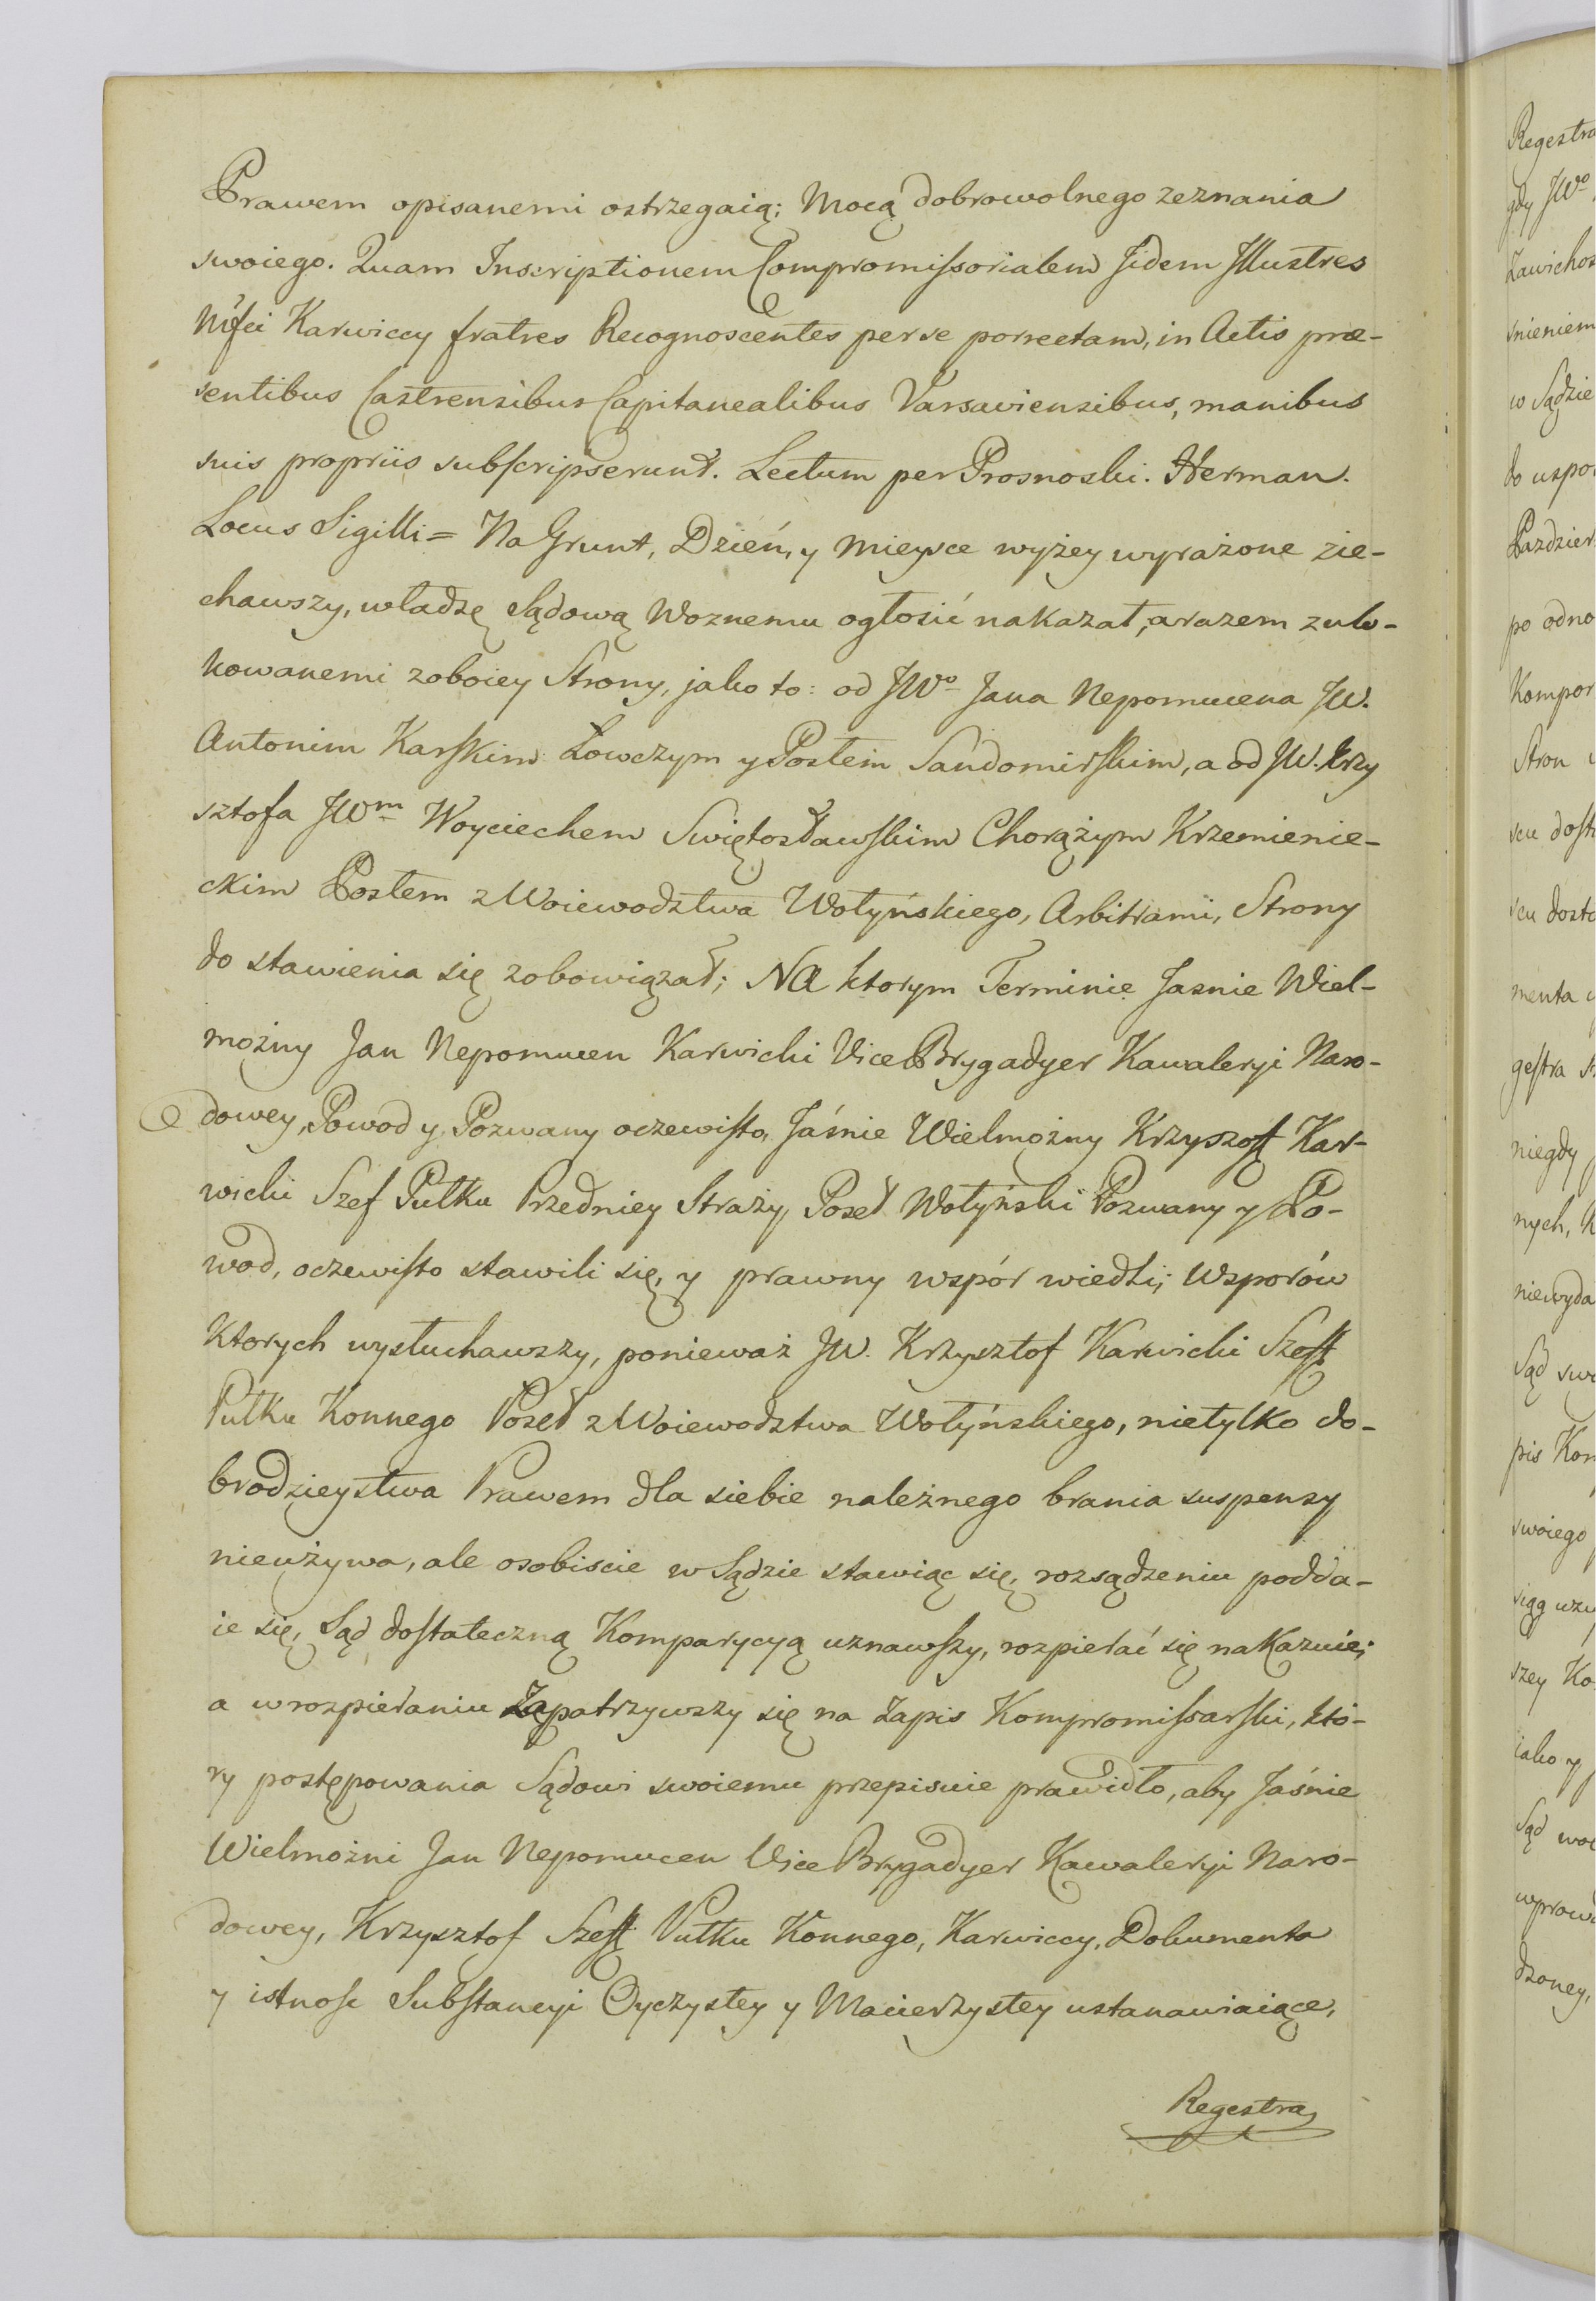 Prawem opisanemi ostrzegaią; Mocą dobrowolnego zeznania
swoiego. Quam Inscriptionem Compromiſsorialem Jidem Jllustres
Mfci Karwiccy fratres Recognoscentes per se porrectam, in Actis præ-
sentibus Castrensibus Capitanealibus Varsaviensibus, manibus
suis propriis subſcripserunt. Lectum per Prosnoski. Herman.
Locus Sigilli = Na Grunt, Dzień, y Mieysce wyżey wyrażone zie-
chawszy, władzę Sądową Woznemu ogłosić nakazał, a razem z ulo-
kowanemi zoboiey Strony, jako to: od JWo Jana Nepomucena JW.
Antonim Karſkim Łowczym y Posłem Sandomirſkim, a od JW. Krzy
sztofa JWm Woyciechem Swiętosławſkim Chorążym Krzemienie-
ckim Posłem z Woiewodztwa Wołyńskiego, Arbitrami, Strony
do stawienia się zobowiązał; NA ktorym Terminie Jasnie Wiel-
możny Jan Nepomucen Karwicki Vice Brygadyer Kawaleryi Naro-
dowey, Powod y Pozwany oczewiſto, Jáśnie Wielmożny Krzyszoff Kar-
wicki Szef Pułku Przedniey Straży, Poseł Wołyński Pozwany y Po-
wod, oczewiſto stawili się, y prawny wspór wiedli; Wsporów
Ktorych wysłuchawszy, ponieważ JW. Krzysztof Karwicki Szeff
Pułku Konnego Poseł z Woiewodztwa Wołyńskiego, nietylko do-
brodzieystwa Prawem dla siebie należnego brania suspensy
nieużywa, ale osobiscie w Sądzie stawiąc się, rozsądzeniu podda-
ie się, Sąd doſtateczną Komparycyą uznawſzy, rozpierać się nakazuie;
a w rozpieraniu Zapatrzywszy się na Zapis Kompromiſsarſki, któ-
ry postępowania Sądowi swoiemu przepisuie prawidło, aby Jaśnie
Wielmożni Jan Nepomucen Vice Brygadyer Kawaleryi Naro-
dowey, Krzysztof Szeff Pułku Konnego, Karwiccy, Dokumenta
y istnoſc Subſtancyi Oyczystey y Macierzystey ustanawiaiące,
Regestra